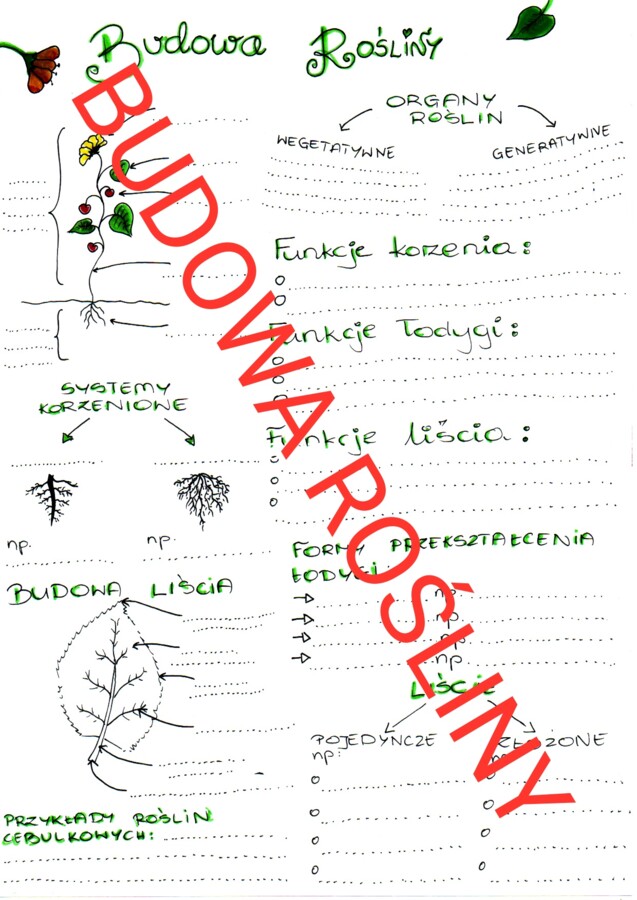 Budowa Rośliny
ORGANY
ROŚLIN
WEGETATYWNE
GENERATYWNE
Funkcje korzenia:
Funkcje łodygi:
Funkcje liścia:
SYSTEMY
KORZENIOWE
np.
np.
FORMY PRZEKSZTAŁCENIA
ŁODYGI
np.
np.
np.
np.
BUDOWA LIŚCIA
LIŚCIE
POJEDYNCZE
np:
ZŁOŻONE
np:
PRZYKŁADY ROŚLIN
CEBULKOWYCH:
BUDOWA ROŚLINY